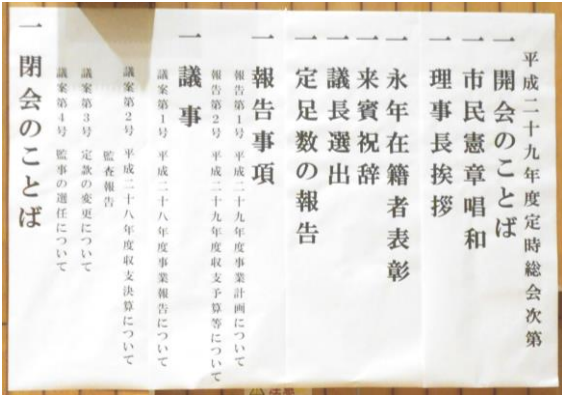 平成二十九年度定時総会次第
一 開会のことば
一 市民憲章唱和
一 理事長挨拶
一 永年在籍者表彰
一 来賓祝辞
一 議長選出
一 定足数の報告
一 報告事項
報告第1号 平成二十九年度事業計画について
報告第2号 平成二十九年度収支予算等について
一 議事
議案第1号 平成二十八年度事業報告について
議案第2号 平成二十八年度収支決算について
監査報告
議案第3号 定款の変更について
議案第4号 監事の選任について
一 閉会のことば